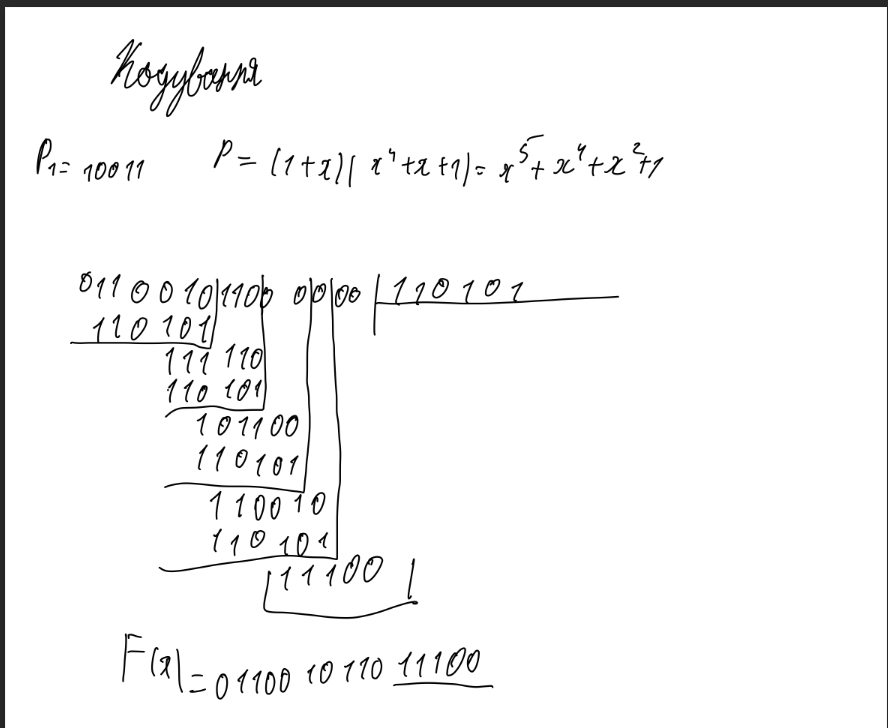 Кодування
P₁= 10011 P = (1+x)( x⁴+x+1)= x⁵+x⁴+x²+1
0110010|1100 0|0|00 | 110101
110101
111 110
110 101
101100
110101
110010
110101
11100
F(x)=01100 10110 11100